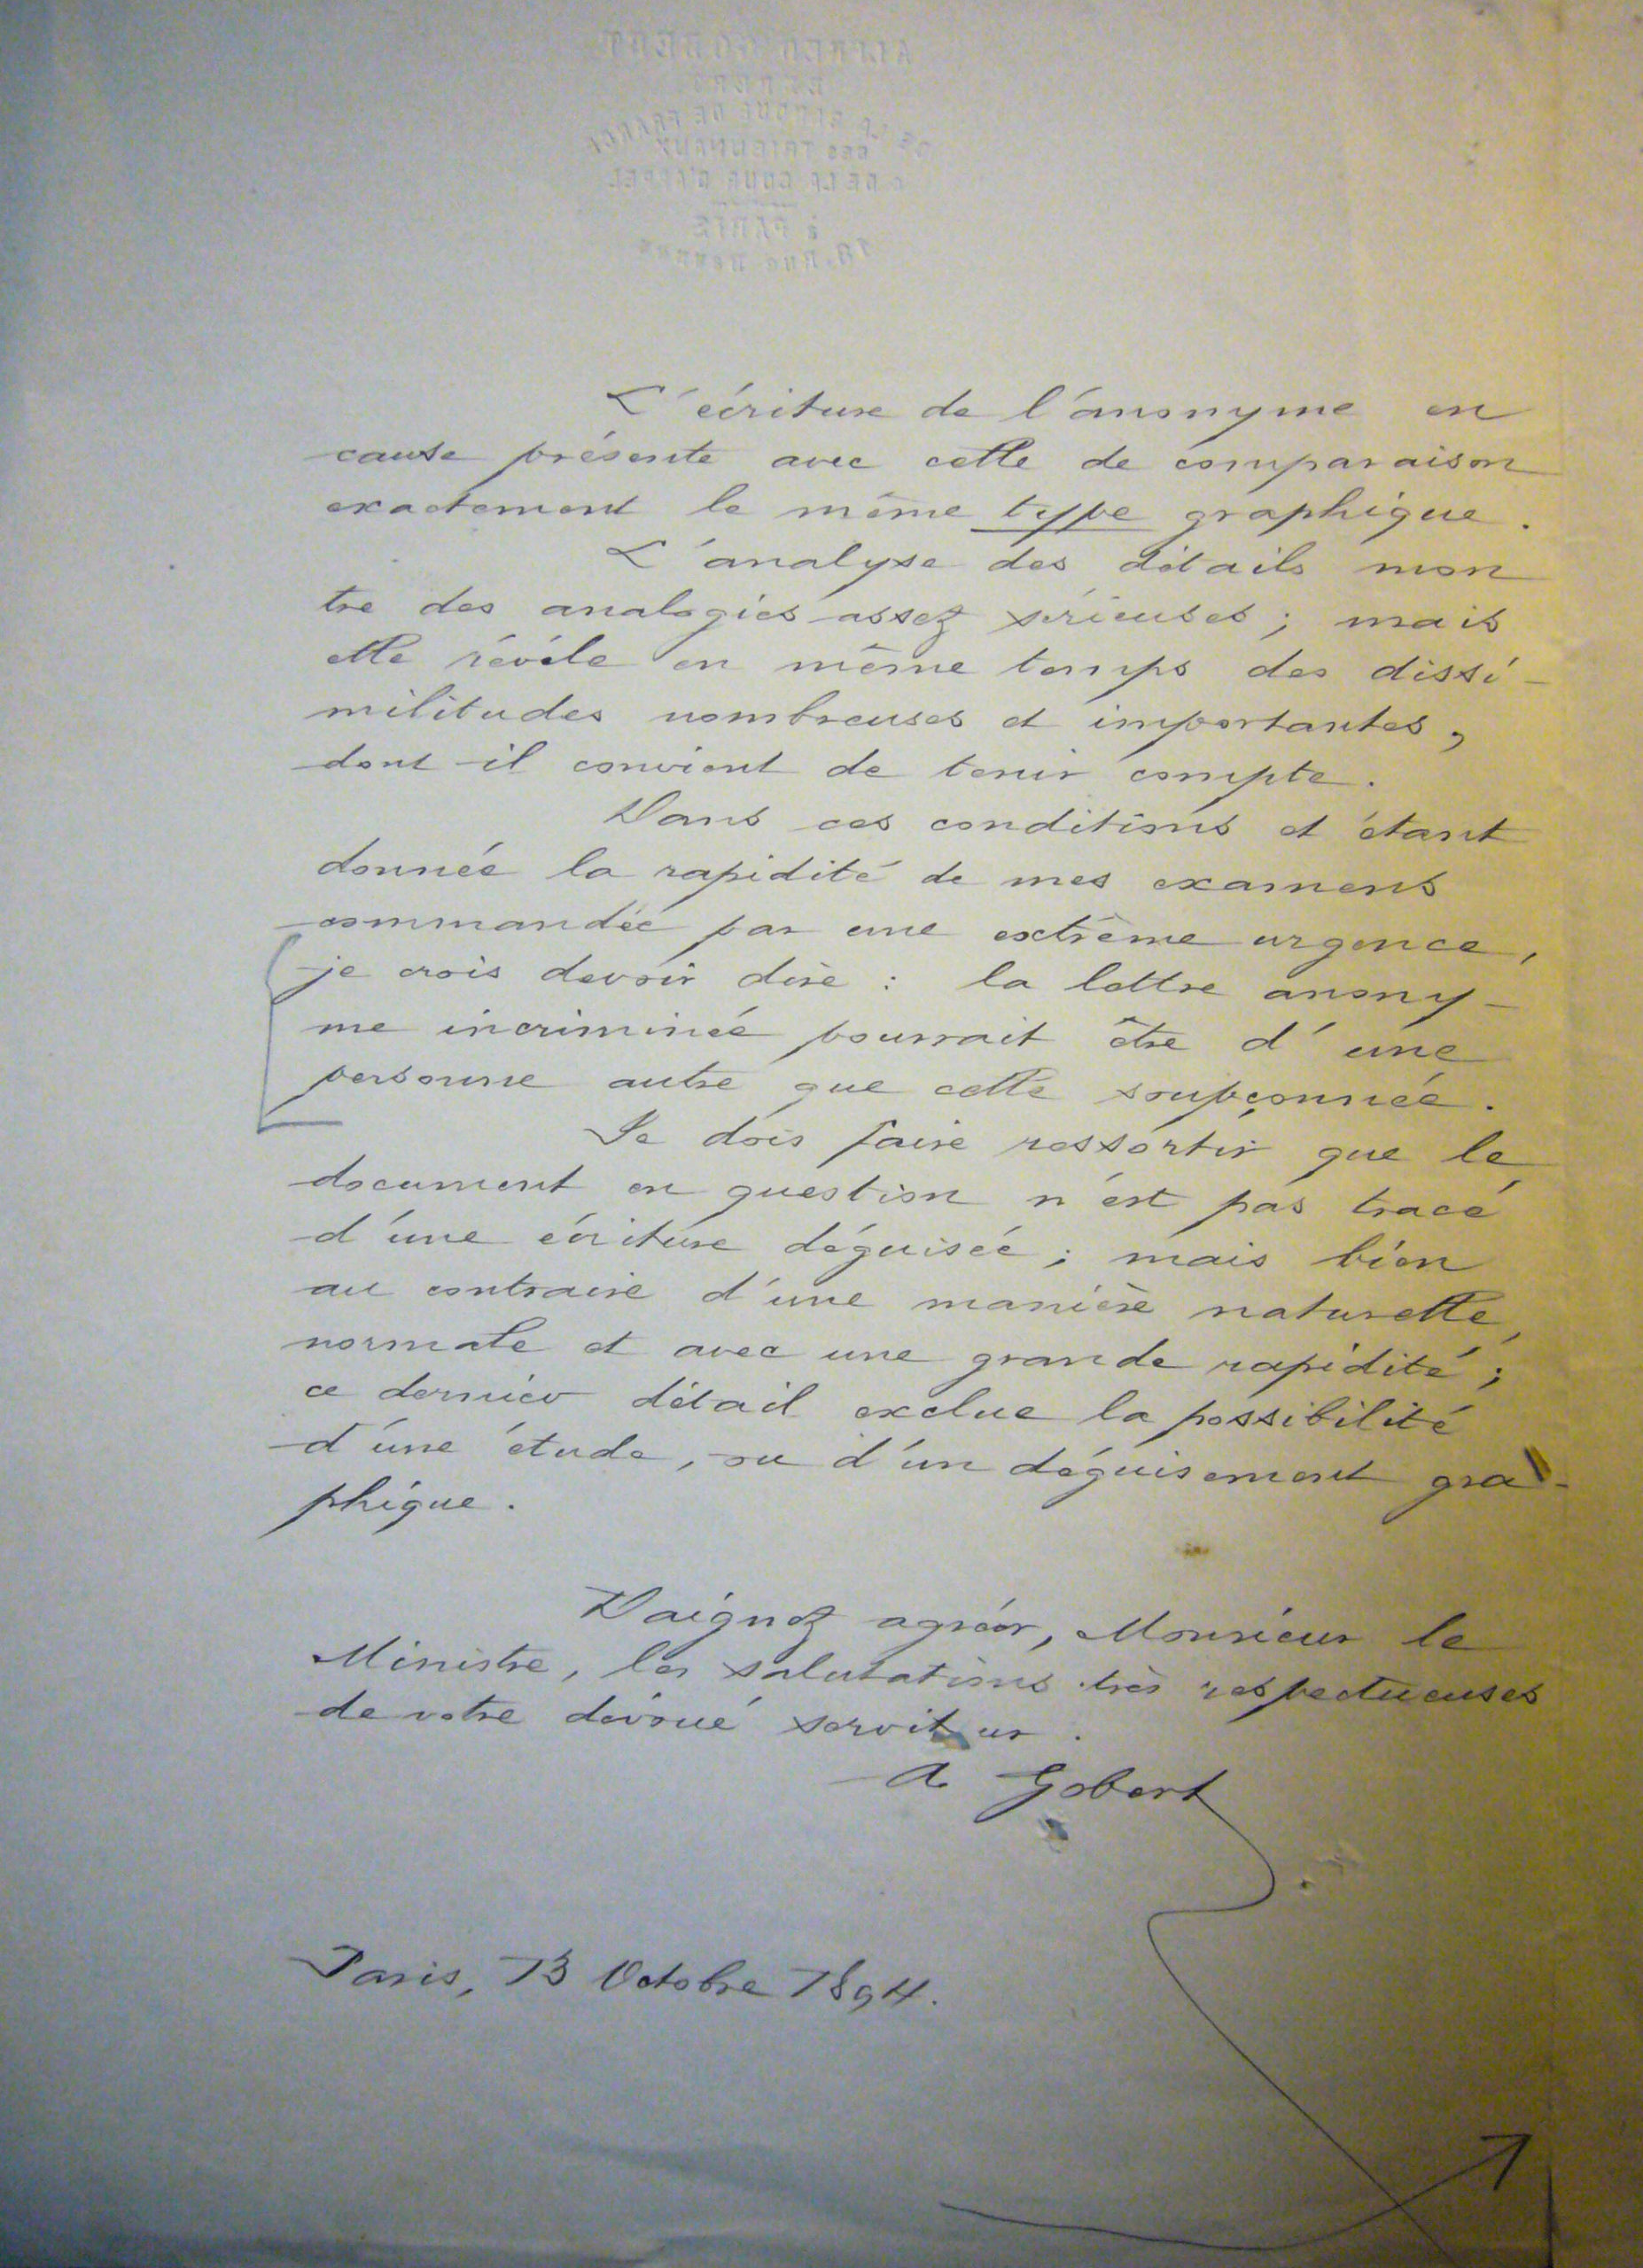 ALFRED GOBERT
EXPERT
DE LA BANQUE DE FRANCE
DES TRIBUNAUX
& DE LA COUR D'APPEL
à PARIS
L'écriture de l'anonyme en
cause présente avec celle de comparaison
exactement le même type graphique.
L'analyse des détails mon
tre des analogies assez sérieuses ; mais
elle révèle en même temps des dissi-
militudes nombreuses et importantes,
dont il convient de tenir compte.
Dans ces conditions et étant
donnée la rapidité de mes examens
commandée par une extrême urgence,
je crois devoir dire : la lettre anony-
me incriminée pourrait être d'une
personne autre que celle soupçonnée.
Je dois faire ressortir que le
document en question n'est pas tracé
d'une écriture déguisée ; mais bien
au contraire d'une manière naturelle,
normale et avec une grande rapidité ;
ce dernier détail exclue la possibilité
d'une étude, ou d'un déguisement gra-
phique.
Daignez agréer, Monsieur le
Ministre, les salutations très respectueuses
de votre dévoué serviteur.
A Gobert
Paris, 13 Octobre 1894.